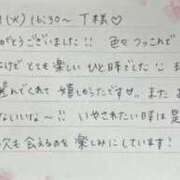 (火) 16:30〜 T様♡
がとうございました!! 色々つっこんで
けどとても楽しいひと時でした
んでくれて嬉しかったです♡。また
ないいな〜!! いやされたい時は是
次も会えるのを楽しみにしています!